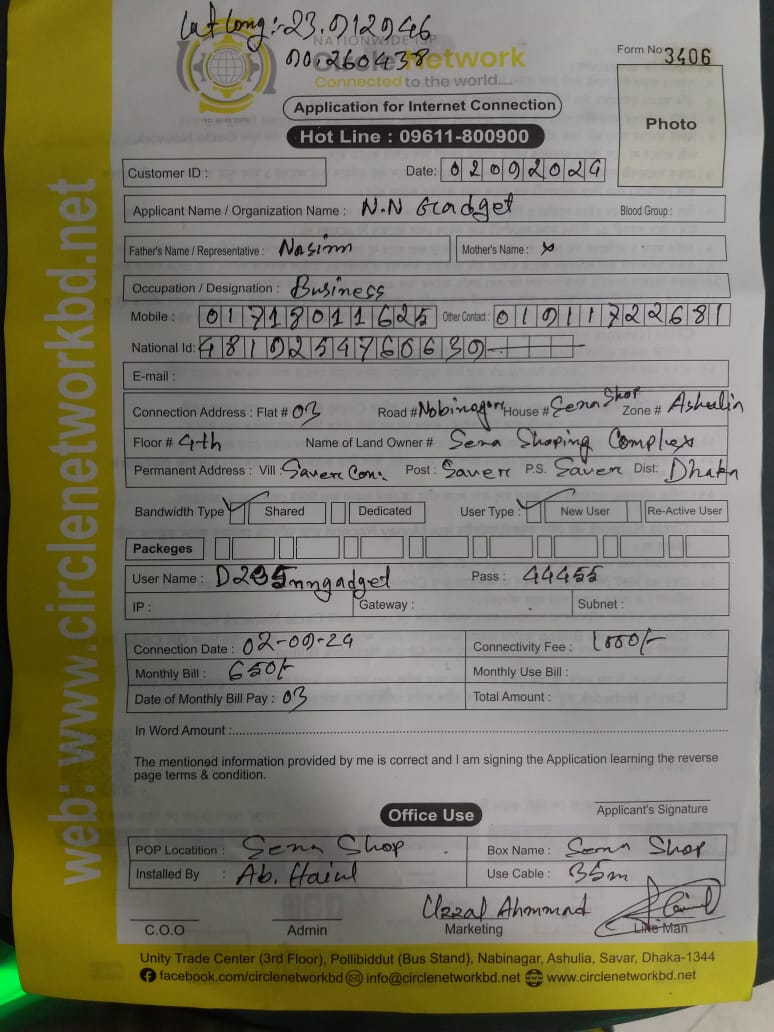 Lat Long:-23.912946
90.260438
NATIONWIDE ISP
Circle Network
Connected to the world.....
Form No 3406
Application for Internet Connection
Photo
Hot Line : 09611-800900
Customer ID :
Date: 02092024
Applicant Name / Organization Name : N.N Gadget Blood Group :
Father's Name / Representative : Nasim Mother's Name : x
Occupation / Designation : Business
Mobile : 01718011625 Other Contact : 01911722681
National Id: 4819254760639
E-mail :
Connection Address : Flat # 03 Road # Nobinagor House # Sena Shop Zone # Ashulia
Floor # 4th Name of Land Owner # Sena Shoping Complex
Permanent Address : Vill : Saver Can: Post : Saver P.S. Saver Dist: Dhaka
Bandwidth Type ✓ Shared Dedicated User Type : ✓ New User Re-Active User
Packeges
User Name : nngadget Pass : 44455
IP : Gateway : Subnet :
Connection Date : 02-09-24 Connectivity Fee : 1000/-
Monthly Bill : 650/- Monthly Use Bill :
Date of Monthly Bill Pay : 03 Total Amount :
In Word Amount :
The mentioned information provided by me is correct and I am signing the Application learning the reverse
page terms & condition.
Applicant's Signature
Office Use
POP Locatition : Sena Shop Box Name : Sena Shop
Installed By : Ab. Use Cable : 35m
Uzzal Ahmmad
C.O.O Admin Marketing Line Man
Unity Trade Center (3rd Floor), Pollibiddut (Bus Stand), Nabinagar, Ashulia, Savar, Dhaka-1344
facebook.com/circlenetworkbd info@circlenetworkbd.net www.circlenetworkbd.net
web: www.circlenetworkbd.net